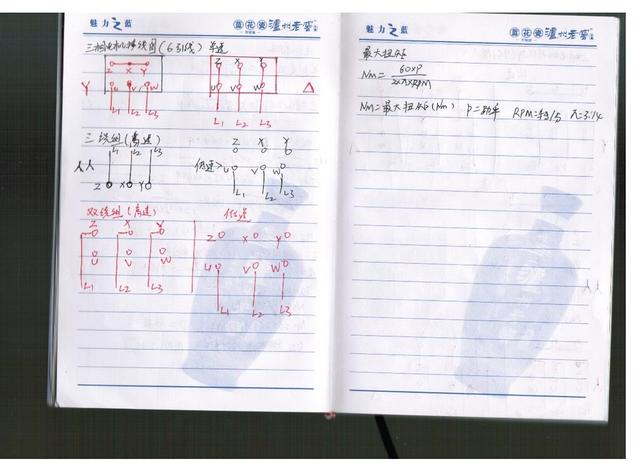 魅力之蓝
蓝花瓷 泸州老窖
三相电机接线图(6引线)单速
Z X Y
Y U V W
L1 L2 L3
Z X Y
U V W △
L1 L2 L3
三线组(高速)
L1 L2 L3
人人 Z X Y
Z X Y
低速> U V W
L1 L2 L3
双线组(高速)
Z X Y
U V W
L1 L2 L3
低速
Z X Y
U V W
L1 L2 L3
魅力之蓝
蓝花瓷 泸州老窖
最大扭矩
Nm= 60×P
2×π×RPM
Nm=最大扭矩(Nm) P=功率 RPM=转/ π=3.14